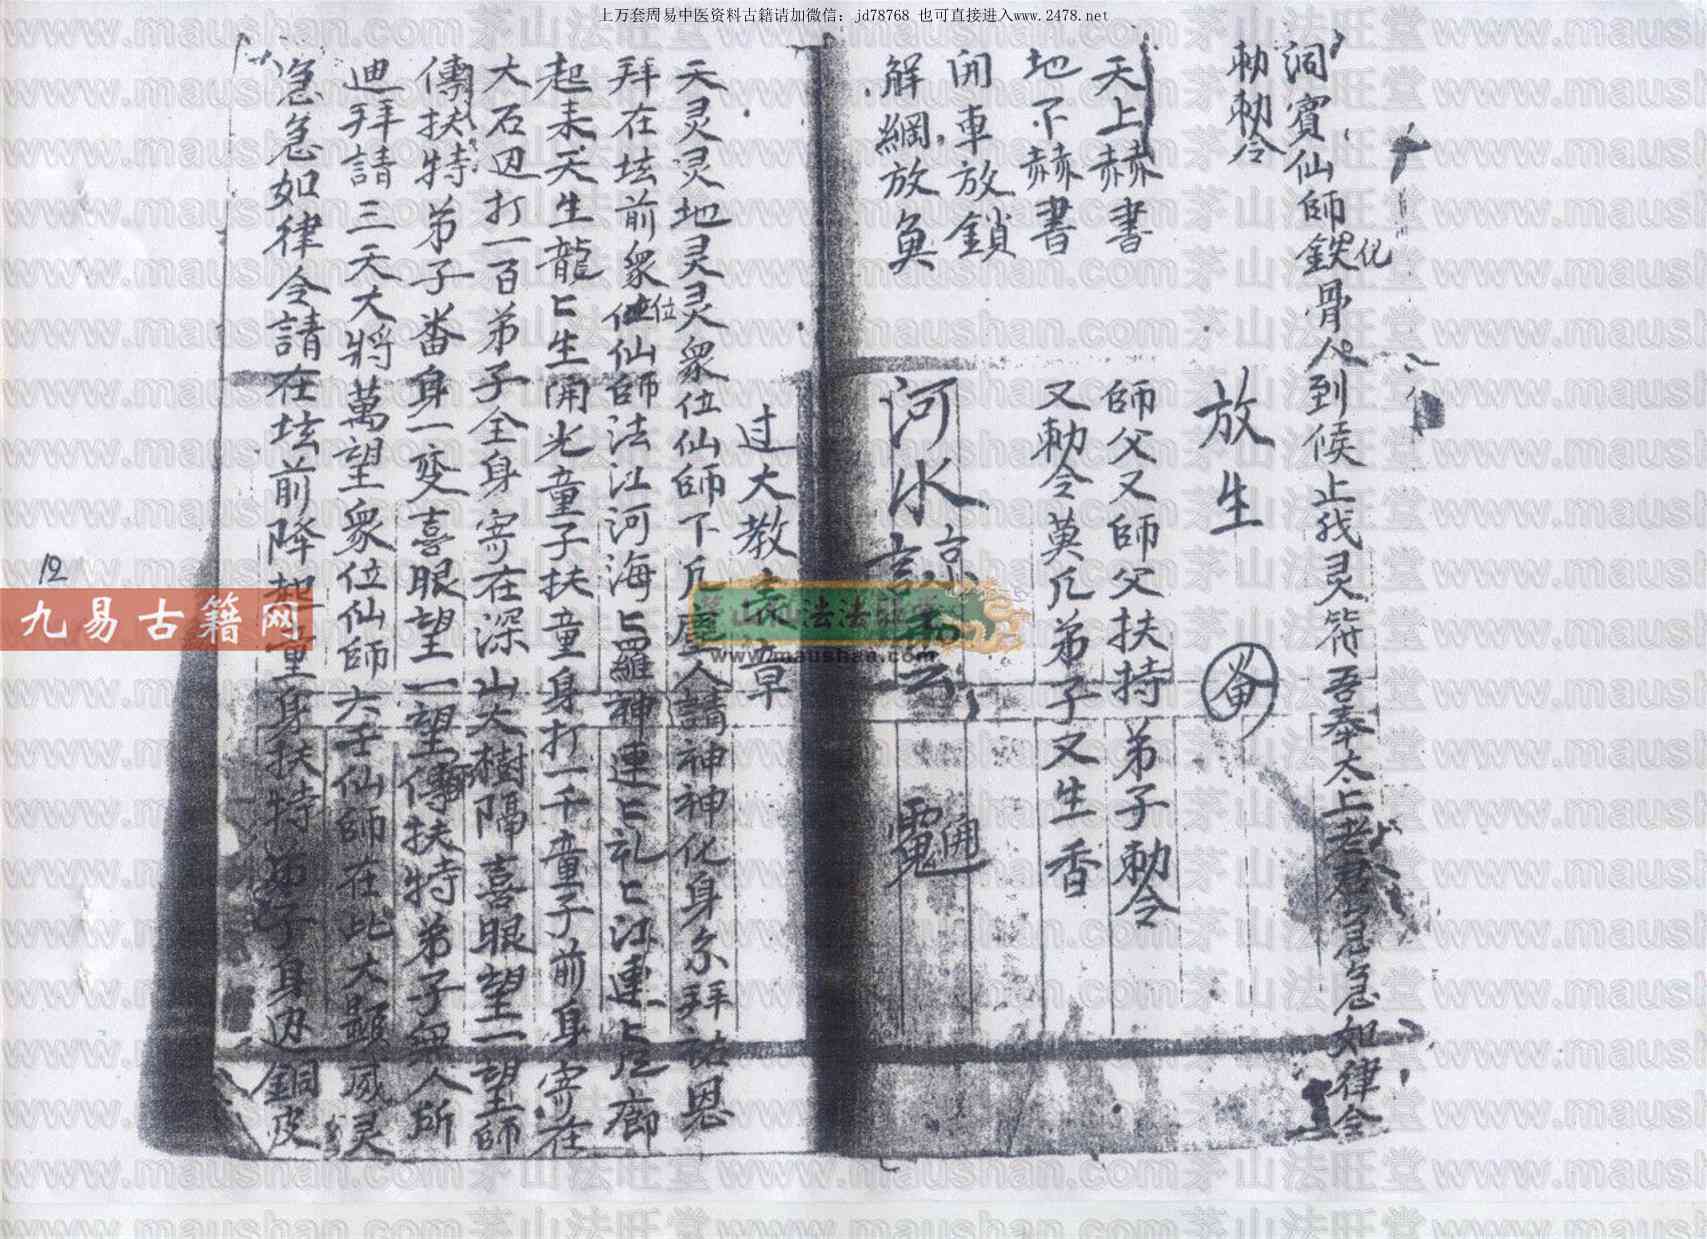 上万套周易中医资料古籍请加微信: jd78768 也可直接进入www.2478.net
洞賓仙師鉄骨人到候止我灵符吾奉太上老君急急如律令
化
勅勅令
放生
天上赫書
師父又師父扶持弟子勅令
地下赫書
又勅令莫凡弟子又生香
開車放鎖
解綱放魚
河水
过大教
章
天灵灵地灵灵眾位仙師下凡塵人請神神化身尔拜祐恩
拜在坛前眾位仙師法江河海匕羅神連匕礼匕江連匕店廊
位
起来天生龍匕生開光童子扶童身打一千童子前身寄在
大石边打一百弟子全身寄在深山大樹隔喜眼望一望師
傳扶特弟子番身一变喜眼望一望傳扶特弟子無人所
迪拜請三天大將萬望眾位仙師六壬仙師在此大顯威灵
急急如律令請在坛前降起童身扶特弟子身边銅皮
12
九易古籍网
www.maushan.com
茅山法旺堂